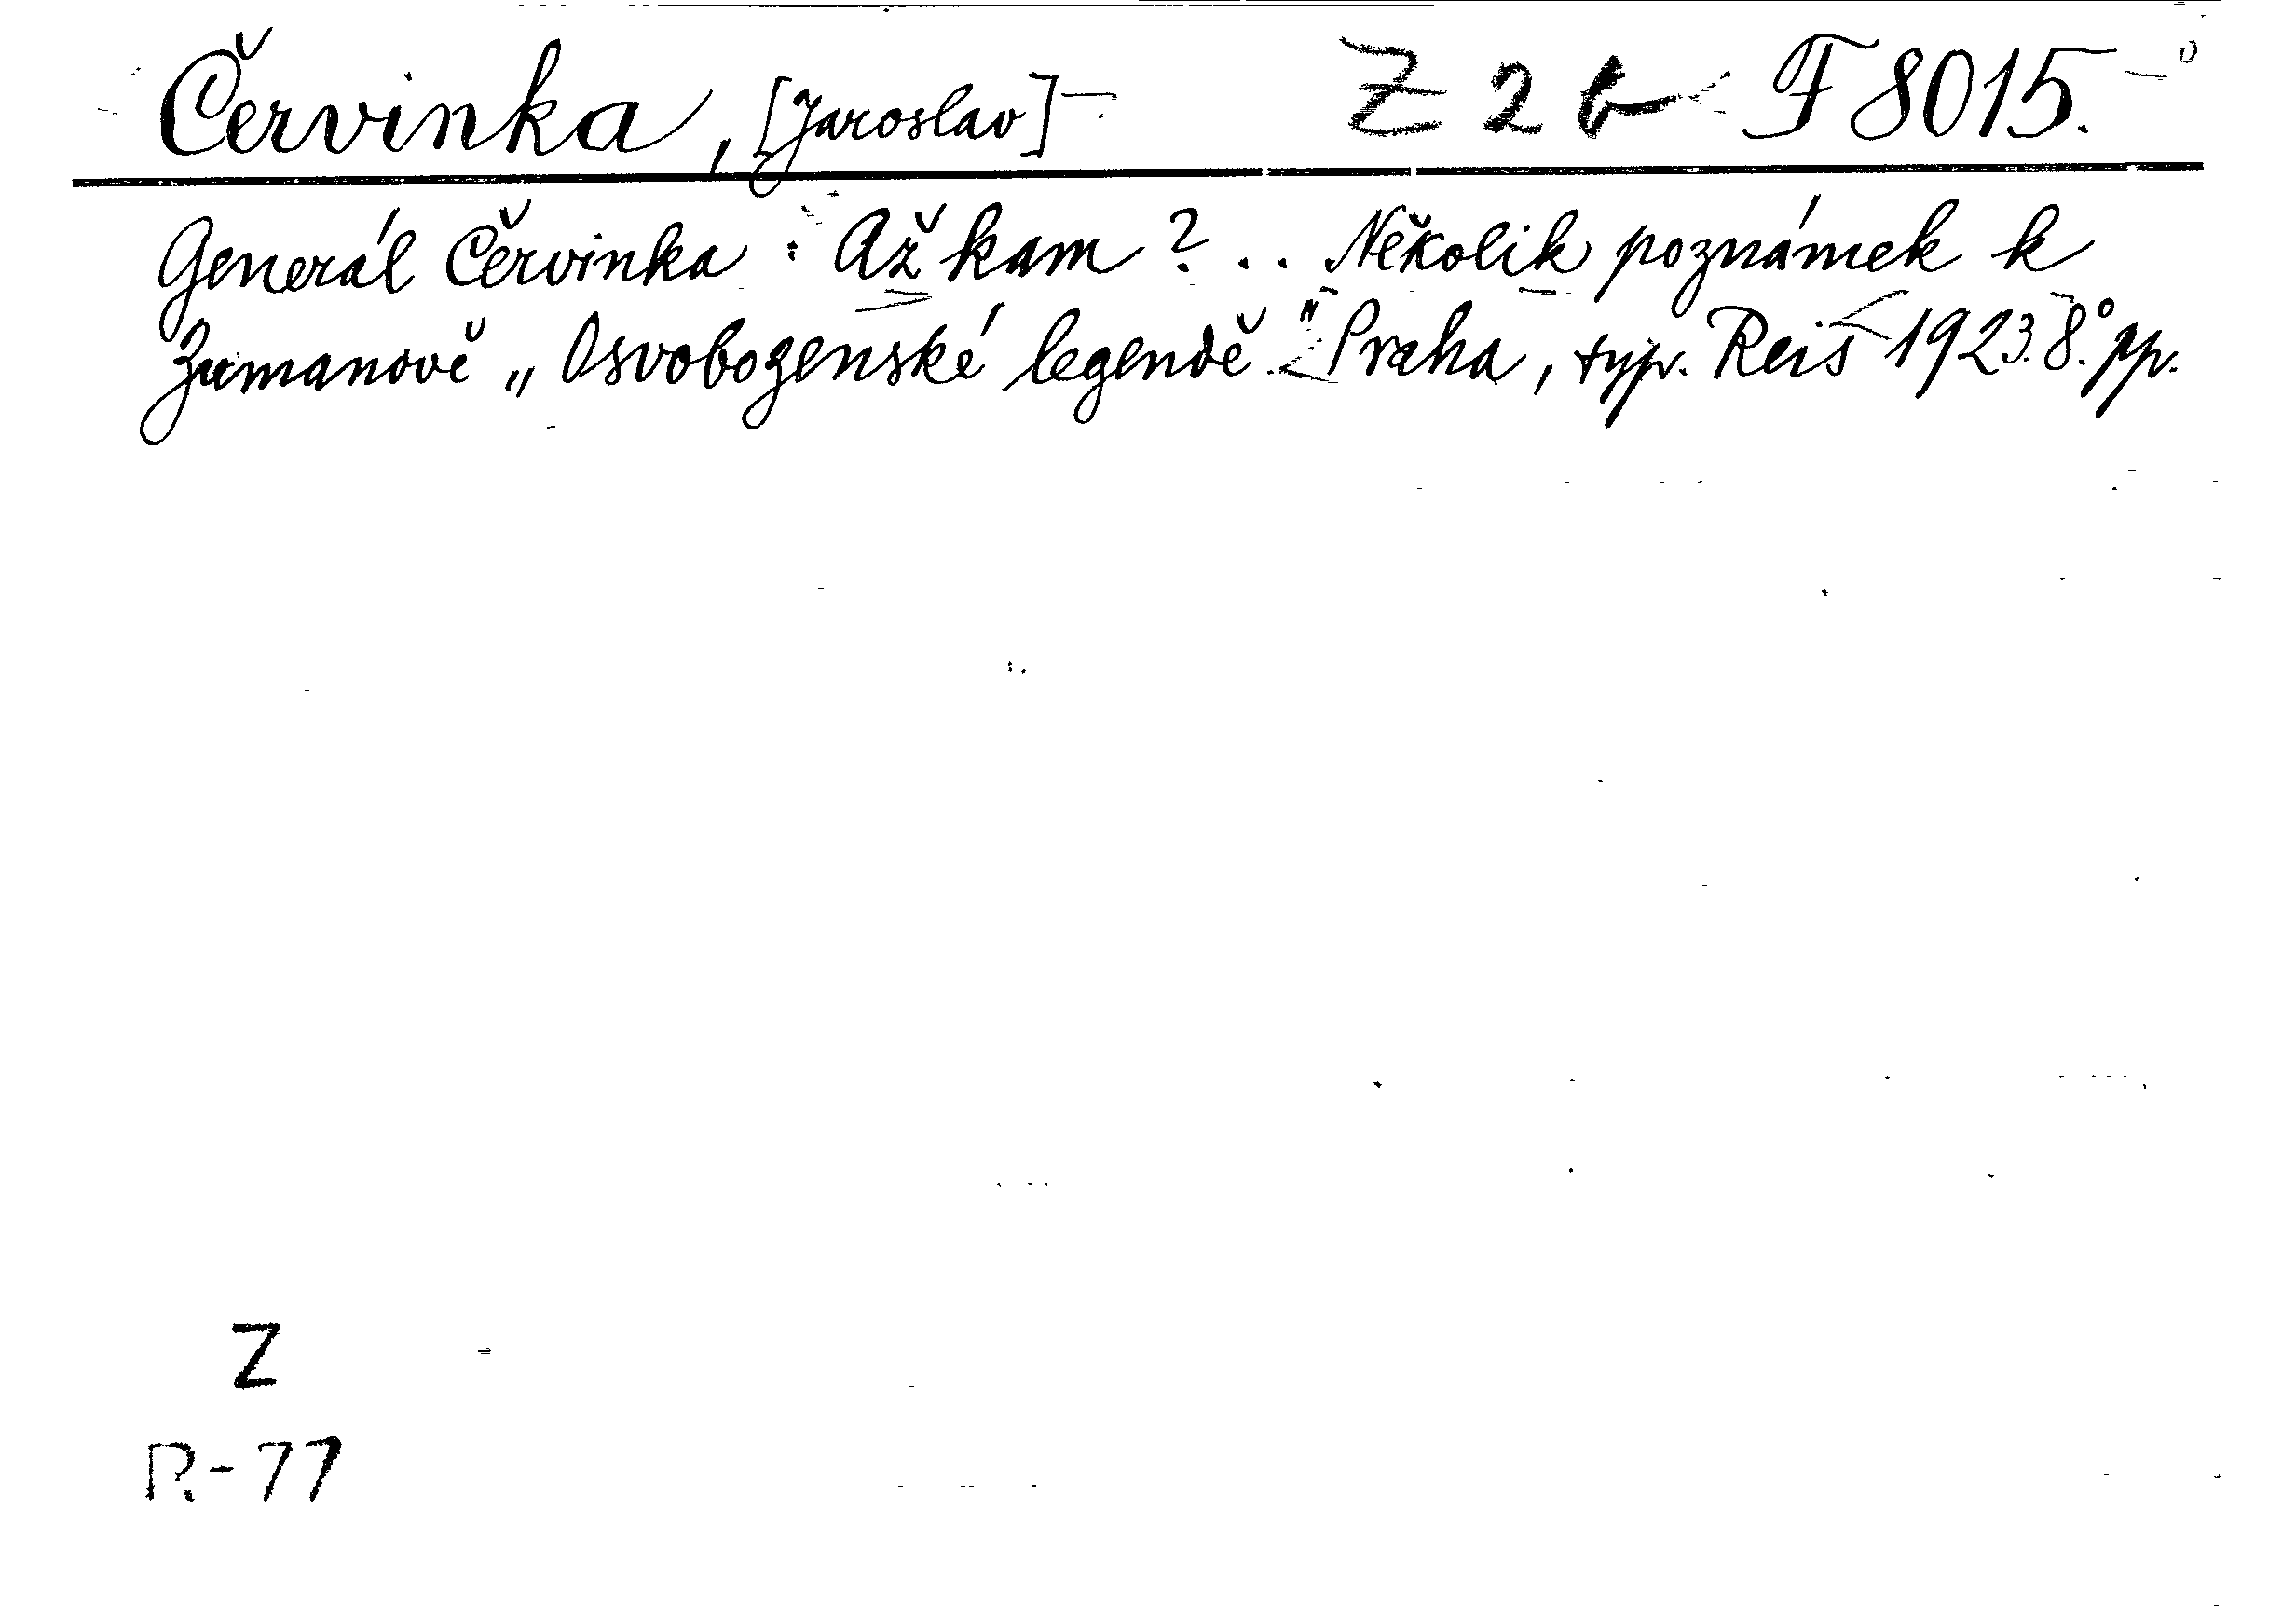 Červinka, [Jaroslav] Z 2 b F 8015.
Generál Červinka : Až kam ? .. Několik poznámek k
Zumanově „Osvobozenské legendě." Praha, typ. Reis 1923. 8.° pp.
Z
R-77